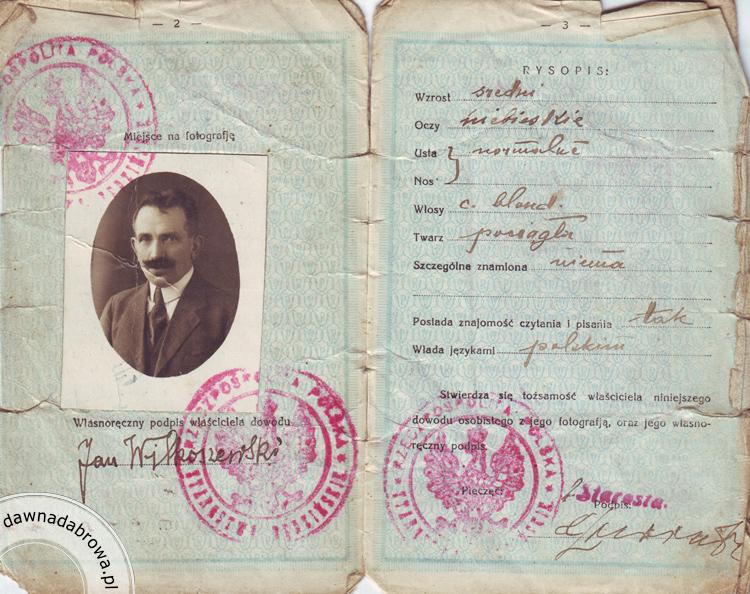 — 2 —
RZECZPOSPOLITA POLSKA
Miejsce na fotografję
Własnoręczny podpis właściciela dowodu
Jan Wilkoszewski
RZECZPOSPOLITA POLSKA
dawnadabrowa.pl
— 3 —
RYSOPIS:
Wzrost średni
Oczy niebieskie
Usta } normalne
Nos
Włosy c. blond.
Twarz pociągła
Szczególne znamiona niema
Posiada znajomość czytania i pisania tak
Włada językami polskim
Stwierdza się tożsamość właściciela niniejszego
dowodu osobistego z jego fotografją, oraz jego własno-
ręczny podpis.
RZECZPOSPOLITA POLSKA
Pieczęć:
Starosta.
Podpis: